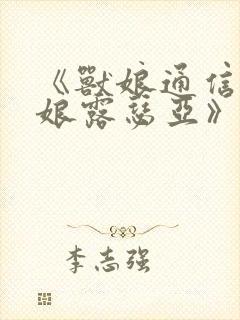 《獸娘通信
娘露瑟亞》
李志强